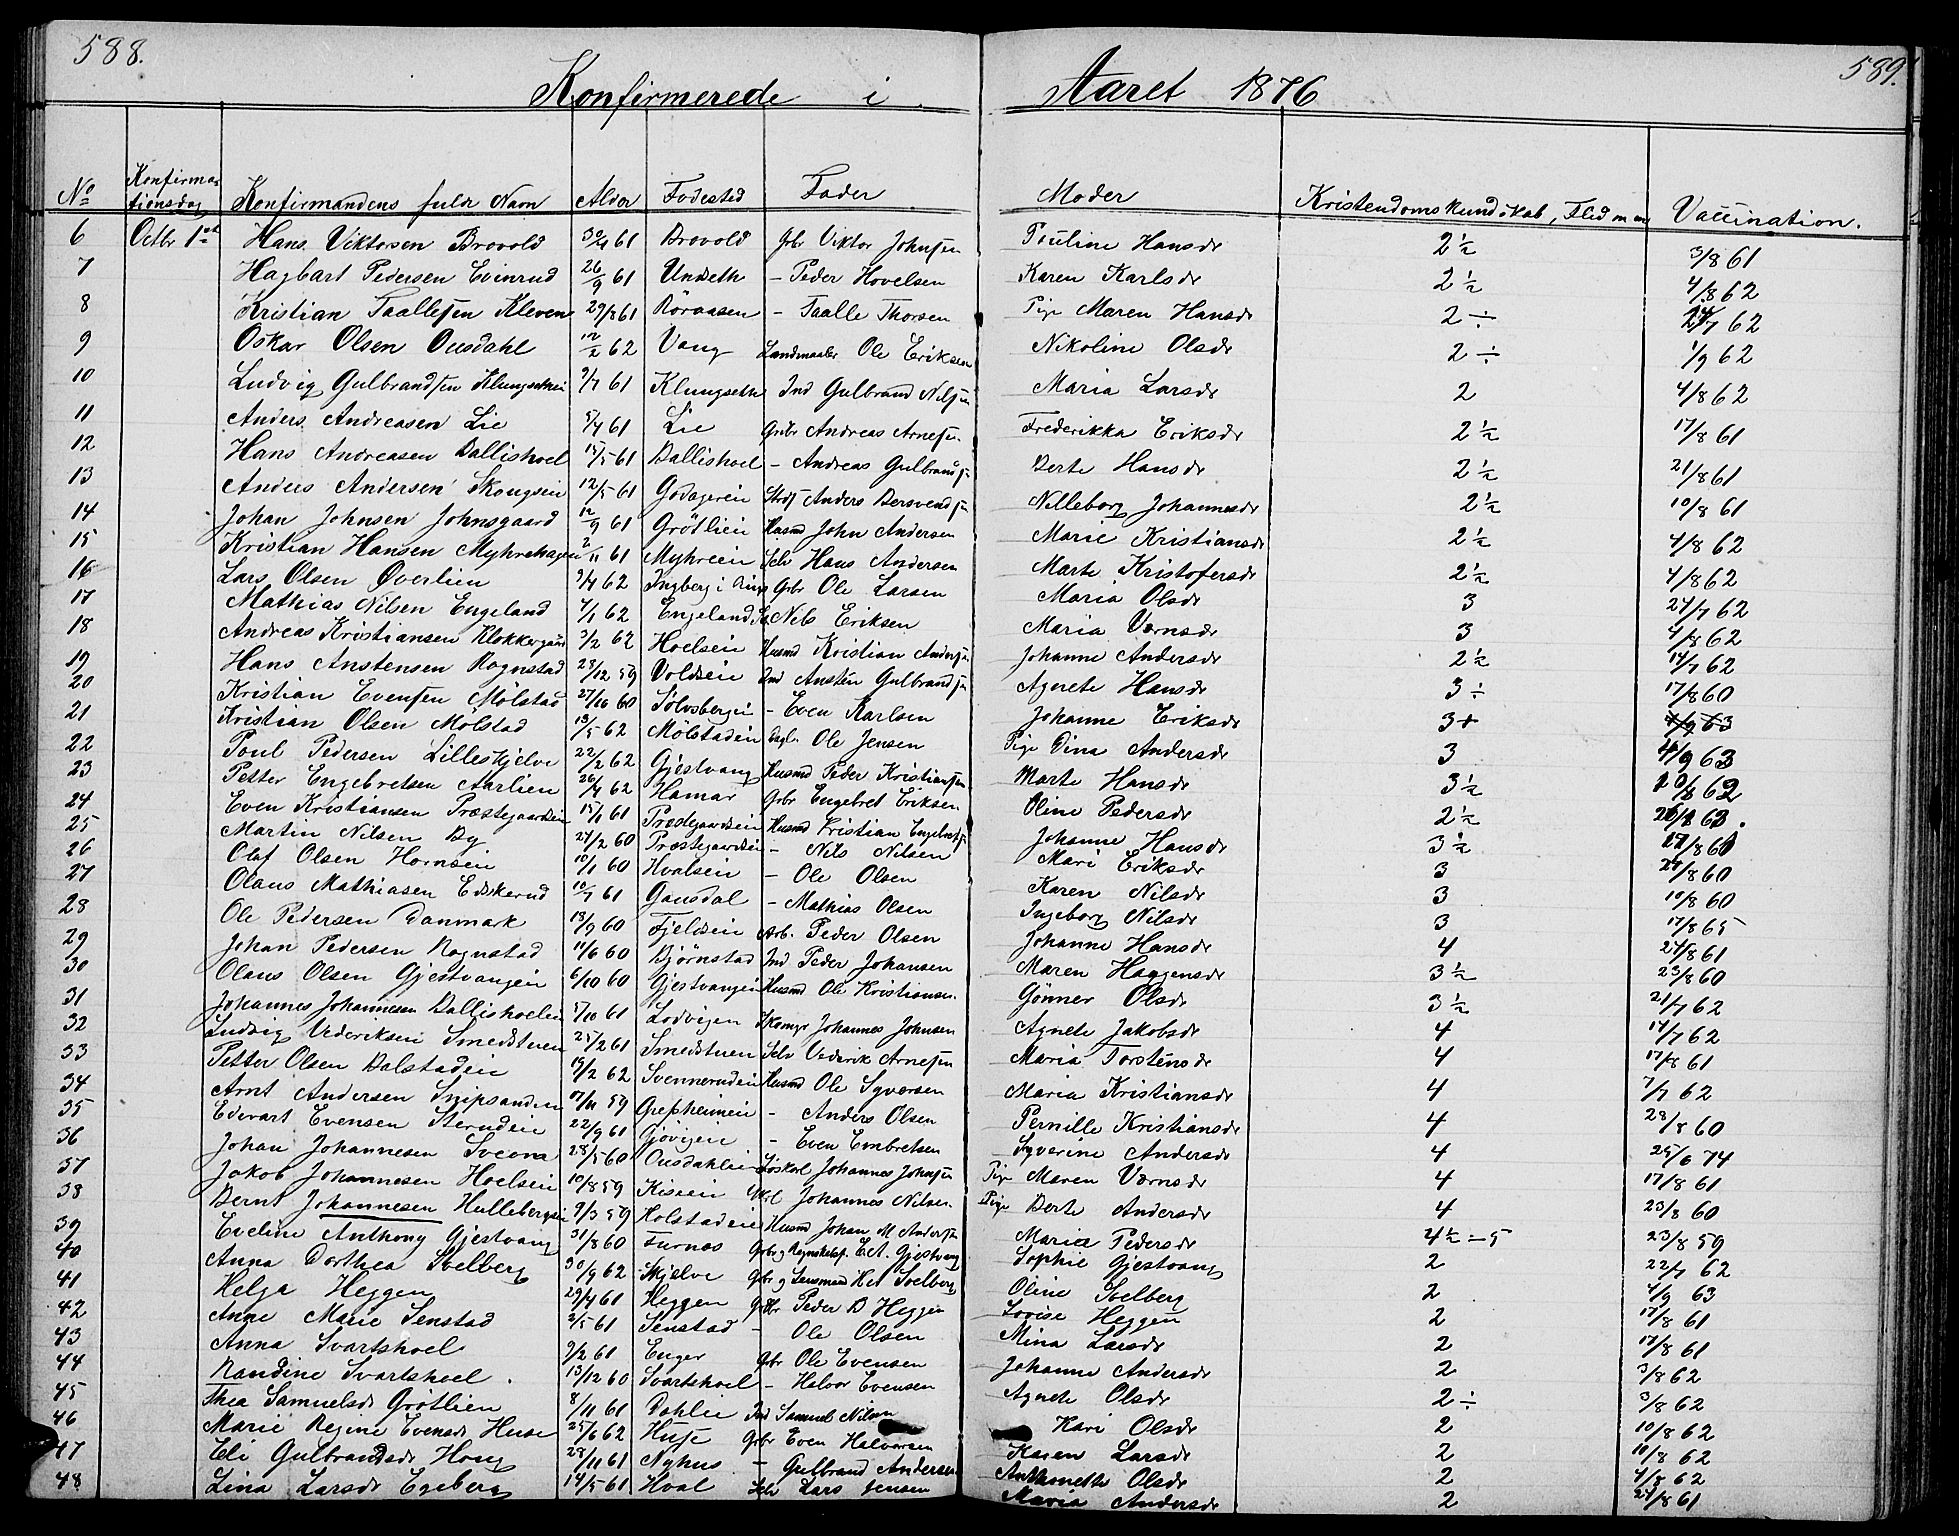 588.
589.
Konfirmerede i Aaret 1876
No Konfirmationsdag Konfirmandens fulde Navn Alder Fødested Fader Moder Kristendomskundskab, Flid m m Vaccination.
6 Octbr 1ste Hans Viktorsen Brovold 61 Brovold Grbr Viktor Johnsen Pouline Hansdr 2½ 3/8 61
7 Hagbart Pedersen Evinrud 26/9 61 Undseth - Peder Hovelsen Karen Karlsdr 2½ 4/8 62
8 Kristian Taallesen Kleven 29/8 61 Röraasen - Taalle Thorsen Pige Maren Hansdr 2 ÷ 62
9 Oskar Olsen Ousdahl 12/2 62 Vang Landmaaler Ole Eriksen Nikoline Olsdr 2 ÷ 1/9 62
10 Ludvig Gulbrandsen 9/7 61 Klungseth Ind Gulbrand Nilsen Maria Larsdr 2 4/8 62
11 Anders Andreasen Lie 5/4 61 Lie Grbr Andreas Arnesen Frederikka Eriksdr 2½ 17/8 61
12 Hans Andreasen Dallishoel 15/5 61 Dallishoel - Andreas Gulbrandsn Berte Hansdr 2½ 21/8 61
13 Anders Andersen 12/5 61 Godagerein Anders Bersvendsn Nilleborg Johannesdr 2½ 10/8 61
14 Johan Johnsen Johnsgaard 12/9 61 Grötlien Husmd John Andersen Marie Kristiansdr 2½ 4/8 62
15 Kristian Hansen Myhrehagen 2/11 61 Myhreien Selv Hans Andersen Marte Kristofersdr 2½ 4/8 62
16 Lars Olsen Øverlien 9/4 62 Ingberg i Rings Grbr Ole Larsen Maria Olsdr 3 24/7 62
17 Mathias Nilsen Engeland 4/1 62 Engeland Nils Eriksen Maria 3 4/8 62
18 Andreas Kristiansen 3/2 62 Hoelsein Husmd Kristian Andersn Johanne Andersdr 2½ 14/7 62
19 Hans Anstensen Rognstad 23/12 59 Voldsein Ind Ansten Gulbrandsn Agnete Hansdr 3 ÷ 17/8 60
20 Kristian Evensen Mölstad 27/10 60 Sölvsbergein - Even Karlsen Johanne Eriksdr 3+
21 Kristian Olsen Mölstad 13/5 62 Mölstadein Dagl. Ole Jensen Pige Dina Andersdr 3 4/9 63
22 Poul Pedersen Lilleskjelve 22/2 62 Gjestvang Husmd Peder Kristiansen Marte Hansdr 3½ 62
23 Petter Engebretsen Aarlien 26/4 62 Hamar Grbr Engebret Eriksen Oline Pedersdr 2½
24 Even Kristiansen Præstegaardsein 15/1 61 Præstegaardsein Husmd Kristian Johanne Hansdr 3½
25 Martin Nilsen By 24/2 60 Præstegaardsein - Nils Nilsen Mari Eriksdr 3 24/8 60
26 Olaf Olsen Hornsein 10/1 60 Hvalsein - Ole Olsen Karen Nilsdr 3 10/8 60
27 Olaus Mathiasen Edskerud 10/7 61 Gausdal - Mathias Olsen Ingeborg Nilsdr 3 17/8 65
28 Ole Pedersen Danmark 13/9 60 Fjeldsein Arb. Peder Olsen Johanne Hansdr 4 24/8 61
29 Johan Pedersen Rognstad 11/6 60 Björnstad Ind Peder Johansen Maren Haagensdr 3½ 23/8 60
30 Olaus Olsen Gjestvangein 6/10 60 Gjestvangein Husmd Ole Kristiansen Gönner Olsdr 3½ 21/7 62
31 Johannes Johannesen Dallishoelein 5/10 61 Lodvigen Johannes Johnsen Agnete Jakobsdr 4 14/7 62
32 Ludvig Vederiksen Smedstuen 25/2 61 Smedstuen Selv Vederik Arnesen Maria Torstensdr 4 17/8 61
33 Petter Olsen Dalstadein 19/2 62 Svennerudein Husmd Ole Syversen Maria Kristiansdr 4 7/7 62
34 Arnt Andersen 17/11 59 Grefsheimein - Anders Olsen Pernille Kristiansdr 4 28/8 60
35 Edvart Evensen Sterudein 22/9 61 Gjövigein - Even Embretsen Syverine Andersdr 4 25/6 74
36 Johan Johannesen Sveom 28/5 60 Ousdahlein Löskarl Johannes Johnsen Pige Maren 4 17/8 61
37 Jakob Johannesen Hoelsein 10/8 59 Kiseien Johannes Nilsen Pige Berte Andersdr 4 23/8 60
38 Bernt Johannesen Hullebergsein 9/3 59 Holstadein Husmd Johan M Andersn Maria Pedersdr 4½-5 23/8 59
39 Eveline Anthony Gjestvang 31/8 60 Furnes Grbr g Regnskabsf. E. A. Gjestvang Sophie Gjestvang 2 22/7 62
40 Anna Dorthea Stelberg 30/9 62 Skjelve Grbr g Lensmand Stelberg Oline Stelberg 2 4/9 63
41 Helga Heggen 29/4 61 Heggen Grbr Peder D Heggen Lovise Heggen 2 17/8 61
42 Anne Marie Senstad 2/5 61 Senstad - Ole Olsen Mina Larsdr 2 17/8 61
43 Anna Svartshoel 9/2 61 Enger Grbr Ole Evensen Johanne Andersdr 2 3/8 62
44 Randine Svartshoel 13/12 60 Svartshoel - Halvor Evensen Agnete Olsdr 2 ÷ 3/8 62
45 Thea Samuelsdr Grötlien 8/11 61 Dahlei Ind Samuel Nilsen Kari Olsdr 2 10/8 62
46 Marie Regine Evensdr Huse 25/6 62 Huse Grbr Even Halvorsen Karen Larsdr 2 10/8 62
47 Eli Gulbrandsdr Houg 28/11 61 Nyhus - Gulbrand Andersen Anthonette Olsdr 2 4/8 62
48 Lina Larsdr Egeberg 14/5 61 Hval Selv Lars Jensen Maria Andersdr 2 24/8 61